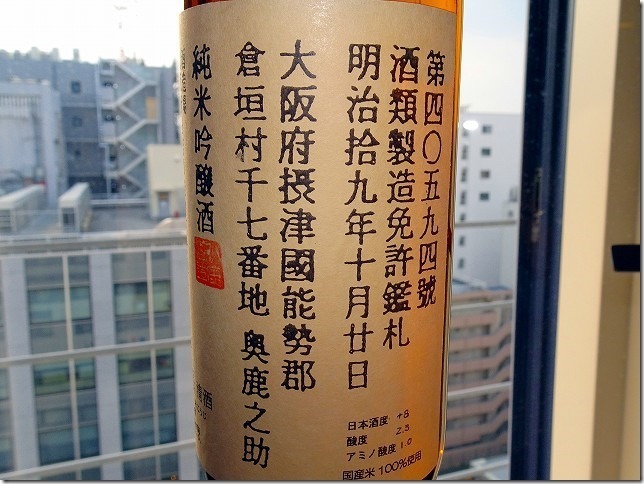 第四〇五九四號
酒類製造免許鑑札
明治拾九年十月廿日
大阪府摂津國能勢郡
倉垣村千七番地 奥鹿之助
純米吟醸酒
日本酒度 +8
酸度 2.5
アミノ酸度 1.0
国産米100%使用